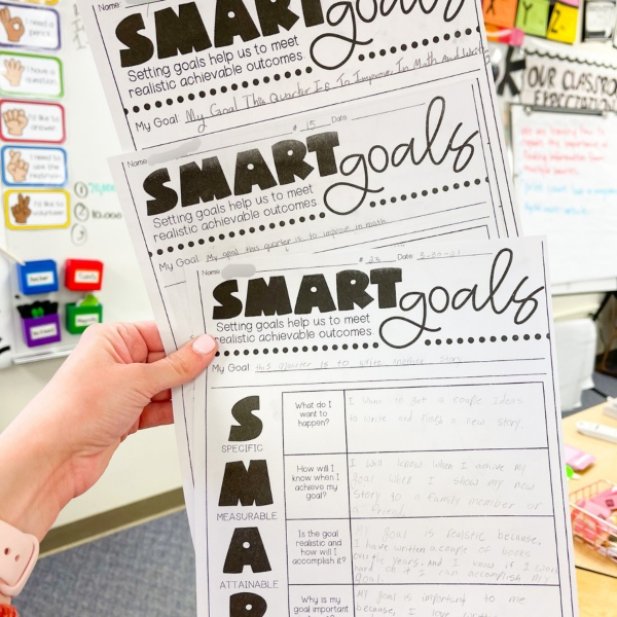 I need a pencil
I have a question
I'd like to answer
I need to use the restroom
I'd like to volunteer
10,000
Name:
SMART goals
Setting goals help us to meet
realistic achievable outcomes.
My Goal: My Goal This Quarter Is To Improve In Math And
Name # 15 Date
SMART goals
Setting goals help us to meet
realistic achievable outcomes.
My Goal: My goal this quarter is to improve in math
Name # 23 Date
SMART goals
Setting goals help us to meet
realistic achievable outcomes.
My Goal: this quarter is to write another story
S
SPECIFIC
What do I
want to
happen?
I want to get a couple ideas
to write and finish a new story.
M
MEASURABLE
How will I
know when I
achieve my
goal?
I will know when I achive my
goal when I show my new
story to a family member or
a friend.
A
ATTAINABLE
Is the goal
realistic and
how will I
accomplish it?
My goal is realistic because,
I have written a couple of books
over the years. And I know if I work
hard on it I can accomplish my
goal.
R
Why is my
goal important
My goal is important to me
because, I love
OUR CLASSROOM
EXPECTATIONS